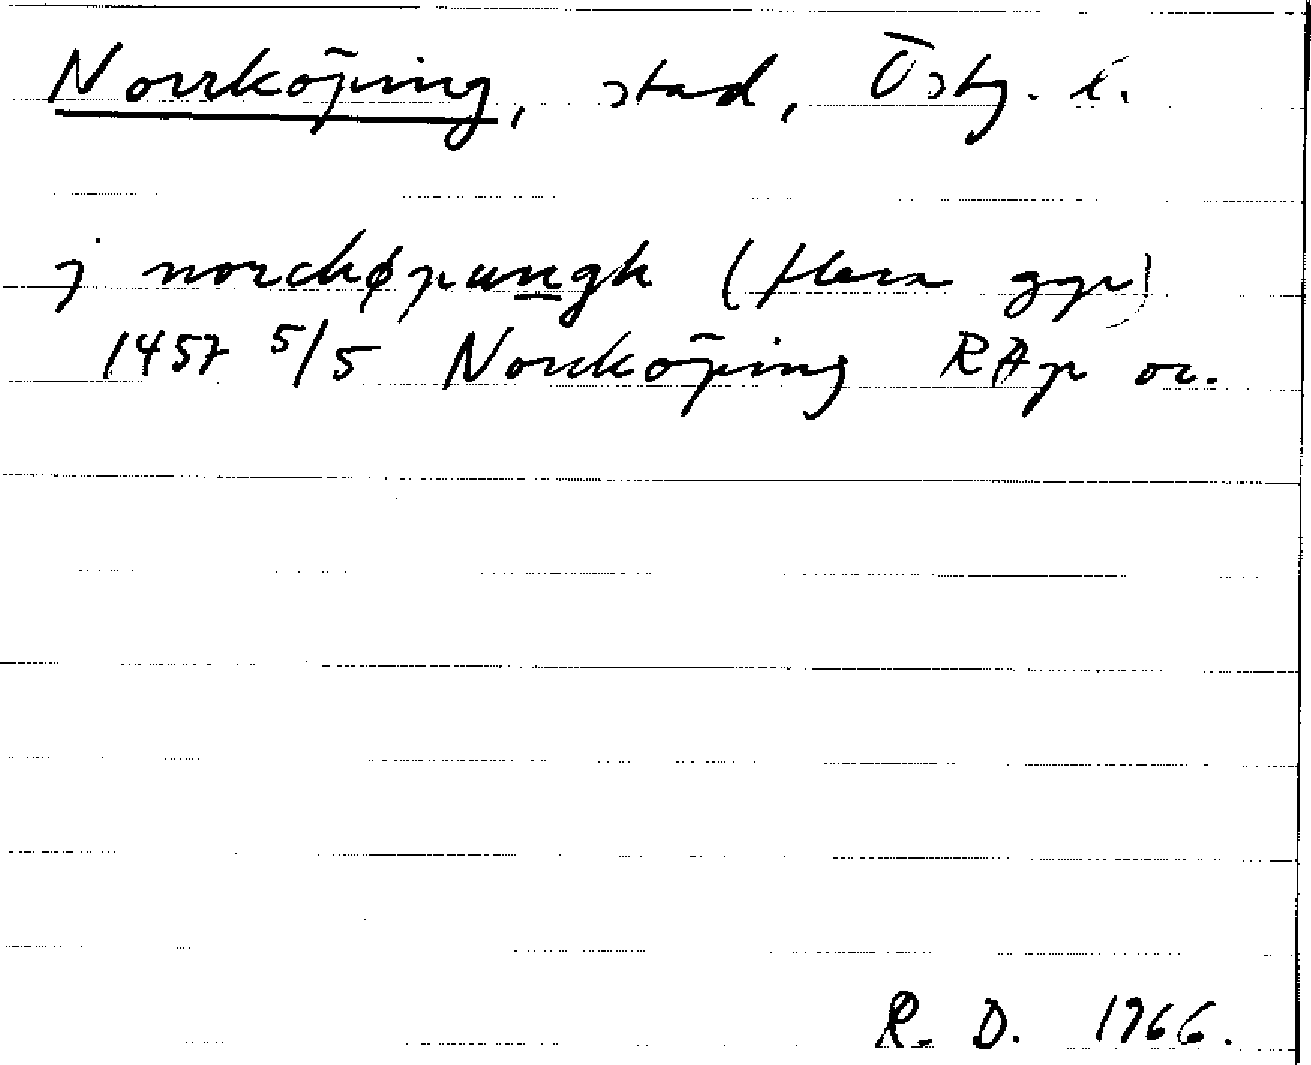 Norrköping, stad, Östg. l.
j norchøpungh (flera ggr)
1457 5/5 Norrköping RAp or.
R. D. 1966.